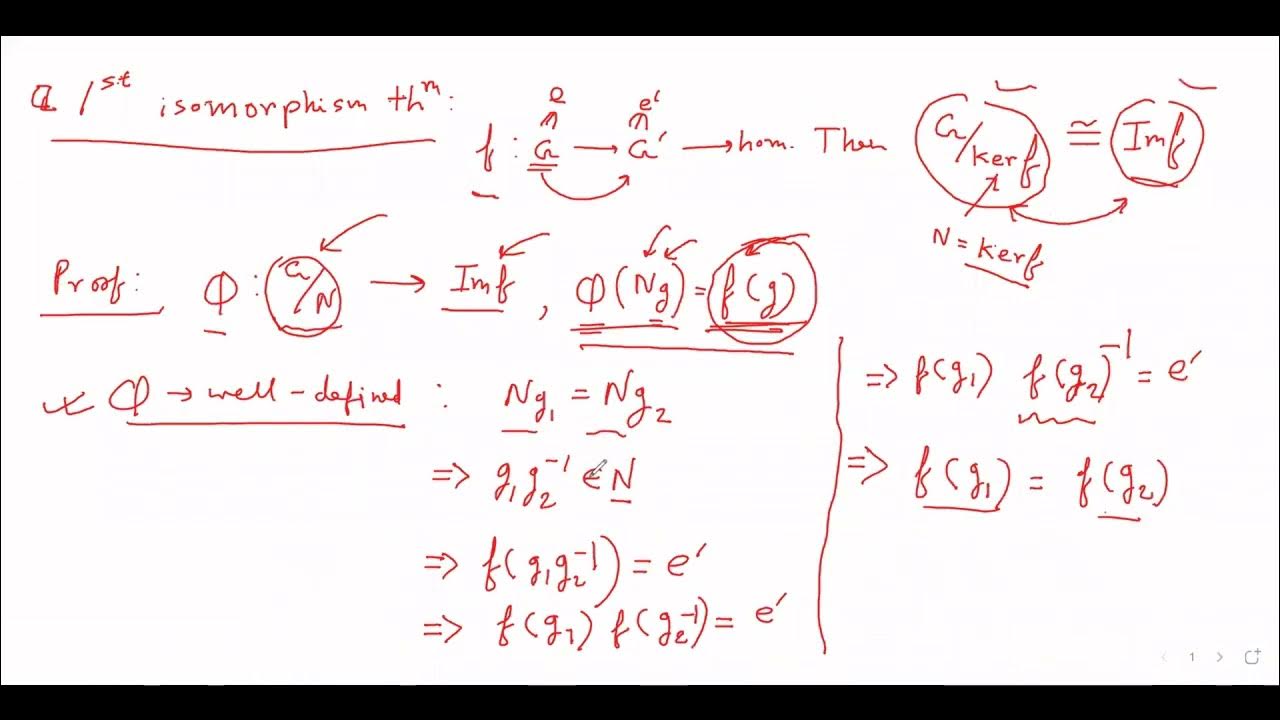 1st isomorphism thm:
e e'
f : G → G' → hom. Then G/kerf ≅ Imf
N = kerf
Proof: φ : G/N → Imf , φ(Ng) = f(g)
φ → well-defined : Ng₁ = Ng₂
=> g₁g₂⁻¹ ∈ N
=> f(g₁g₂⁻¹) = e'
=> f(g₁) f(g₂⁻¹) = e'
=> f(g₁) f(g₂)⁻¹ = e'
=> f(g₁) = f(g₂)
1